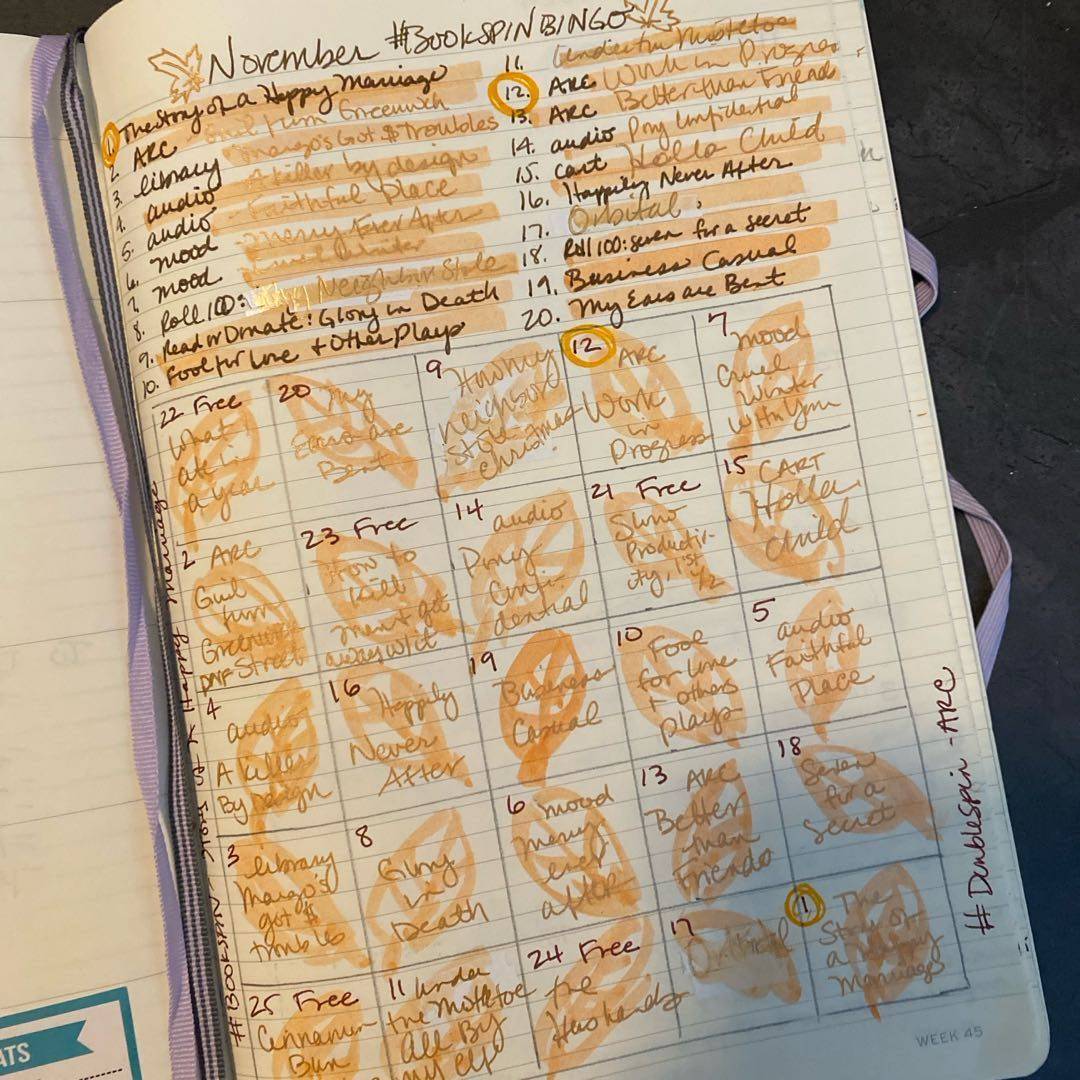 November #BOOKSPINBINGO
1. The Story of a Happy Marriage
2. ARC Greenwich
3. library Margo's Got $ Troubles
4. audio A killer by design
5. audio - Faithful Place
6. mood Merry Ever After
7. mood
8. Roll 100: Neighbor Stole
9. Read or Donate: Glory in Death
10. Fool for Love + Other Plays
11. Under the Mistletoe
12. ARC Work in Progress
13. ARC Better than Friends
14. audio Pony Confidential
15. cart Holla Child
16. Happily Never After
17. Orbital
18. Roll 100: seven for a secret
19. Business Casual
20. My Ears are Bent
22 Free
What I
ate in
a year
20
My
Ears are
Bent
9
How my
neighbor
Stole
Christmas
12
ARC
Work
in
Progress
7
mood
Cruel
Winter
with You
2
ARC
from
Greenwich
DNF Street
23 Free
How to
kill
men + get
away w/ it
14 audio
Pony
Confi-
dential
21 Free
Slow
Productiv-
ity, 1st
1/2
15 CART
Holla
Child
4
audio
A killer
By Design
16
Happily
Never
After
19
Business
Casual
10
Fool
for Love
+ others
plays
5
audio
Faithful
Place
3
library
Margo's
got $
troubles
8
Glory
in
Death
6 mood
merry
ever
after
13 ARC
Better
than
Friends
18
Seven
for a
Secret
25 Free
Cinnamon
Bun
11 under
the Mistletoe
All By
myself
24 Free
the
Husbands
17
Orbital
1
The
Story of
a Happy
Marriage
#BOOKSPIN Story of A Happy Marriage
#Doublespin - ARC
WEEK 45
ATS